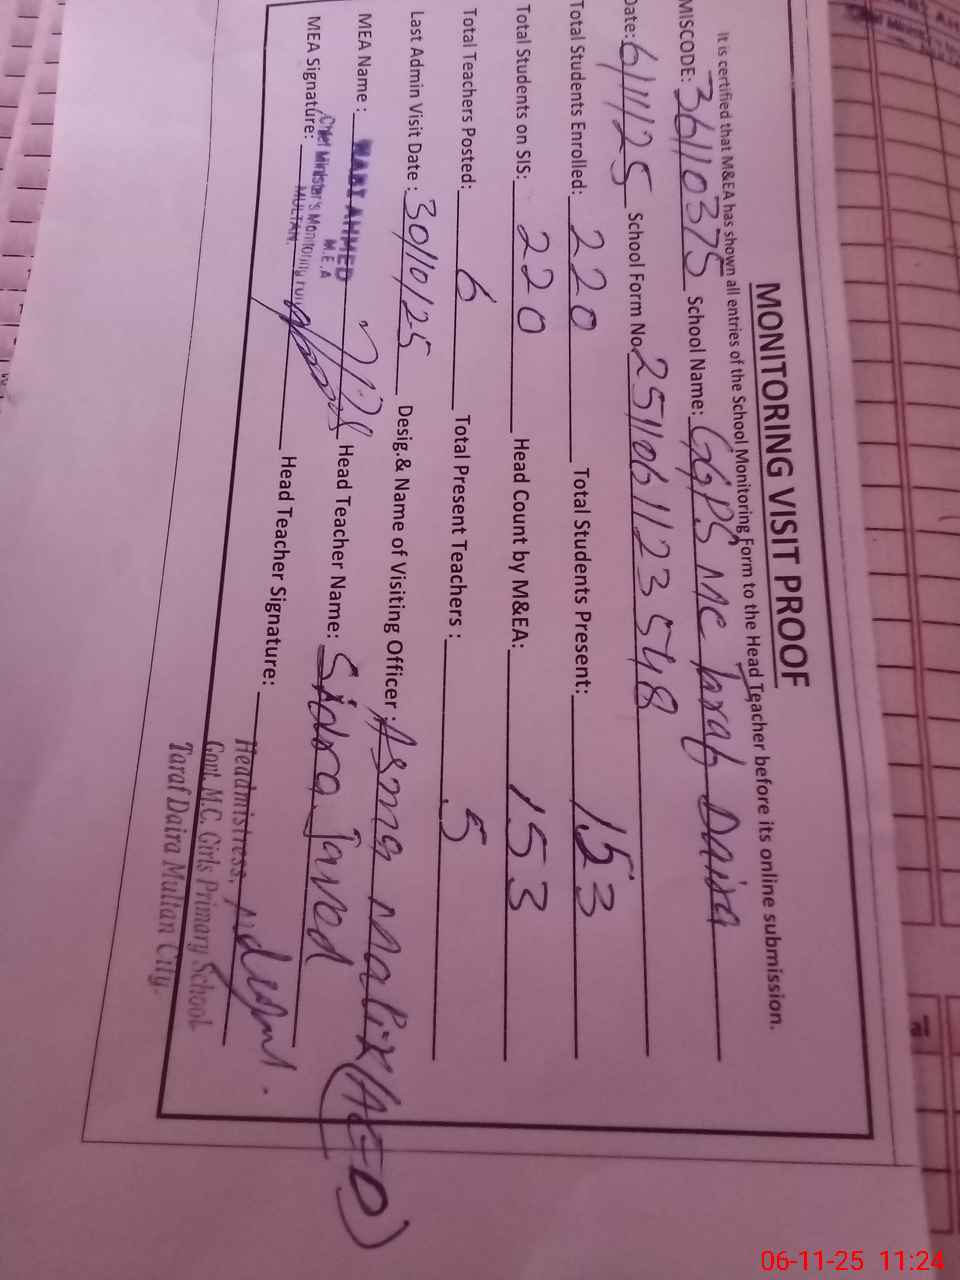 MONITORING VISIT PROOF
It is certified that M&EA has shown all entries of the School Monitoring Form to the Head Teacher before its online submission.
MISCODE: 36110375 School Name: GGPS MC Taraf Daira
Date: 6/11/25 School Form No. 2511061123548
Total Students Enrolled: 220 Total Students Present: 153
Total Students on SIS: 220 Head Count by M&EA: 153
Total Teachers Posted: 6 Total Present Teachers : 5
Last Admin Visit Date : 30/10/25 Desig.& Name of Visiting Officer : Asma Malik (AEO)
MEA Name : AHMED Head Teacher Name: Sidra Javed
M.E.A
Chief Minister's Monitoring
MULTAN.
MEA Signature: Head Teacher Signature:
Headmistress,
Govt. M.C. Girls Primary School
Taraf Daira Multan City.
06-11-25 11:24